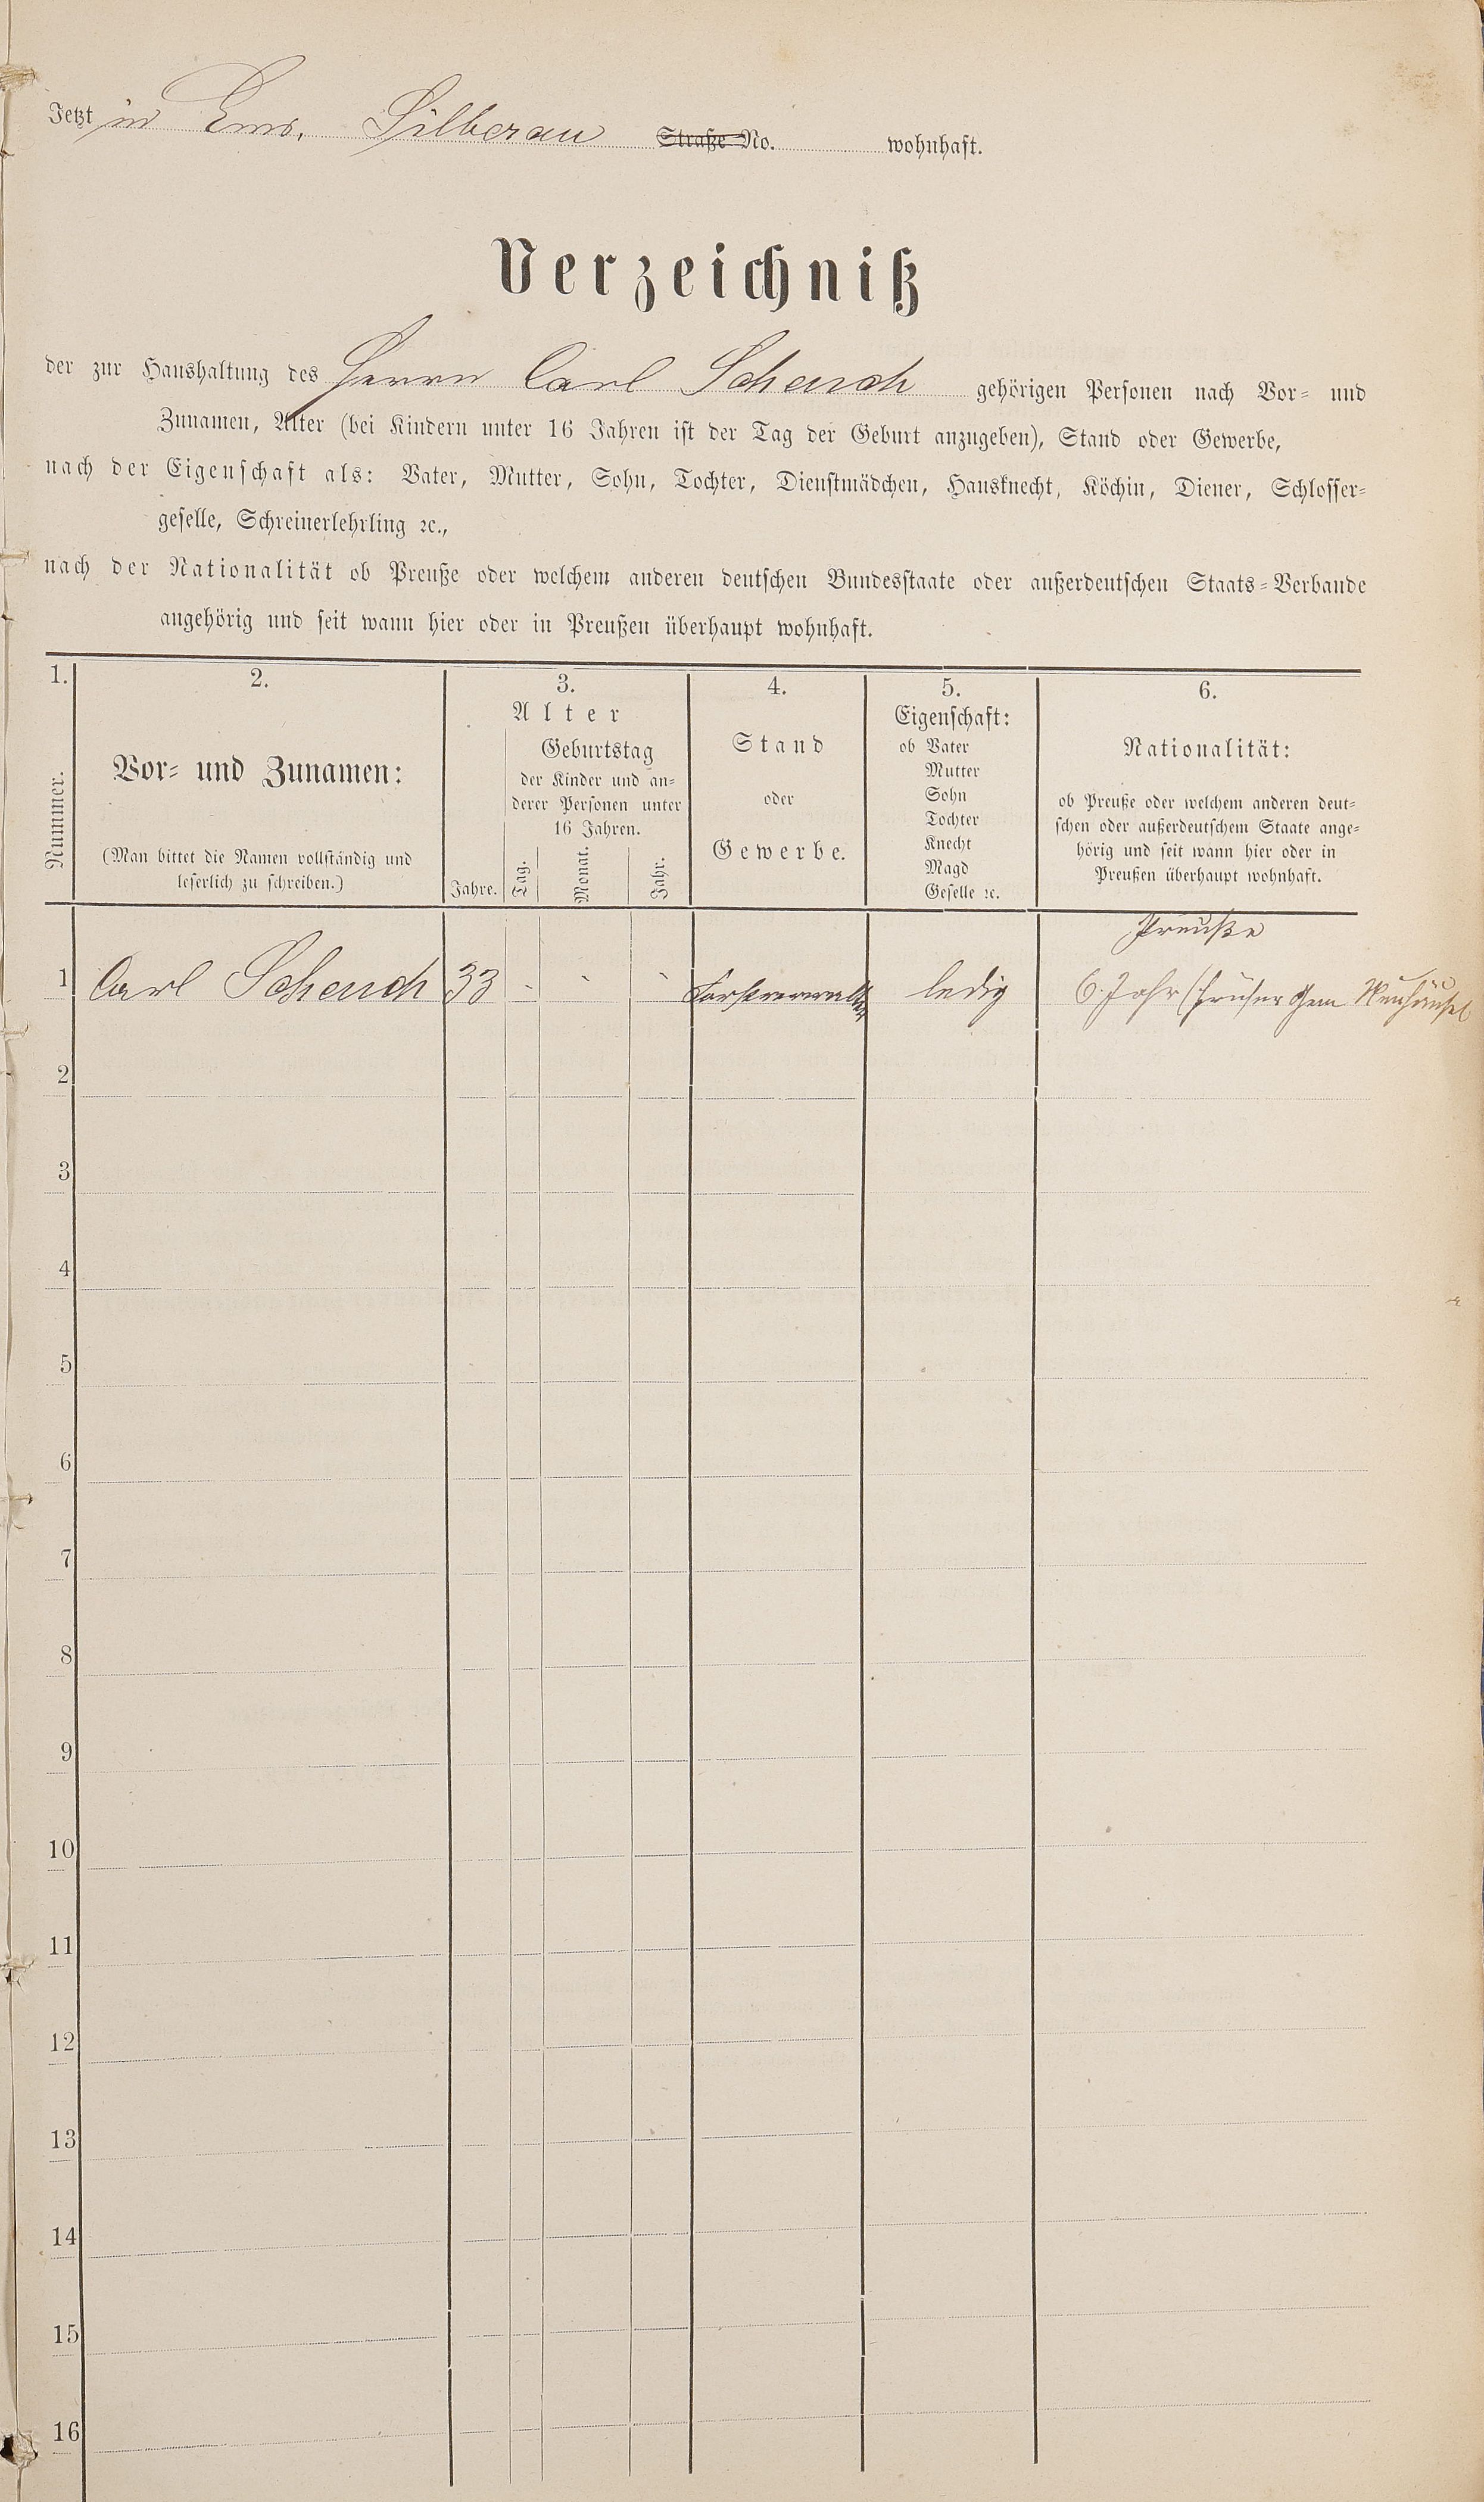 Jetzt in Ems, Silberau Straße No. wohnhaft.
Verzeichniß
der zur Haushaltung des Herrn Carl Scheuch gehörigen Personen nach Vor- und
Zunamen, Alter (bei Kindern unter 16 Jahren ist der Tag der Geburt anzugeben), Stand oder Gewerbe,
nach der Eigenschaft als: Vater, Mutter, Sohn, Tochter, Dienstmädchen, Hausknecht, Köchin, Diener, Schlosser-
geselle, Schreinerlehrling ꝛc.,
nach der Nationalität ob Preuße oder welchem anderen deutschen Bundesstaate oder außerdeutschen Staats-Verbande
angehörig und seit wann hier oder in Preußen überhaupt wohnhaft.
1.
Nummer.
2.
Vor- und Zunamen:
(Man bittet die Namen vollständig und
leserlich zu schreiben.)
3.
Alter
Jahre.
Geburtstag
der Kinder und an-
derer Personen unter
16 Jahren.
Tag.
Monat.
Jahr.
4.
Stand
oder
Gewerbe.
5.
Eigenschaft:
ob Vater
Mutter
Sohn
Tochter
Knecht
Magd
Geselle ꝛc.
6.
Nationalität:
ob Preuße oder welchem anderen deut-
schen oder außerdeutschem Staate ange-
hörig und seit wann hier oder in
Preußen überhaupt wohnhaft.
Preuße
1 Carl Scheuch 33 - - - Forstverwalter ledig 6 Jahr (früher Gem Neuhäusel
2
3
4
5
6
7
8
9
10
11
12
13
14
15
16